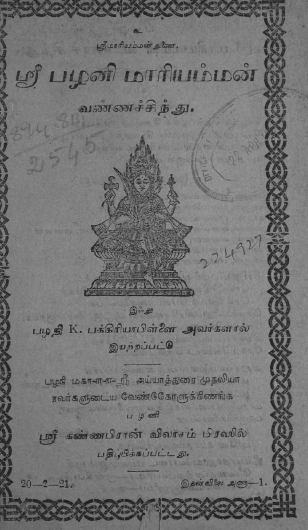 உ
ஸ்ரீமாரியம்மன் துணை.
ஸ்ரீ பழனி மாரியம்மன்
வண்ணச்சிந்து.
2545
224927
இஃது
பழநி K. பக்கிரியாபிள்ளை அவர்களால்
இயற்றப்பட்டு
பழநி மகா-ள-ள-ஸ்ரீ அய்யாத்துரை முதலியா
ரவர்களுடைய வேண்கோளுக்கிணங்க
பழனி
ஸ்ரீ கண்ணபிரான் விலாசம் பிரஸில்
பதிப்பிக்கப்பட்டது.
20-2-21.
இதன்விலை அணா-1.